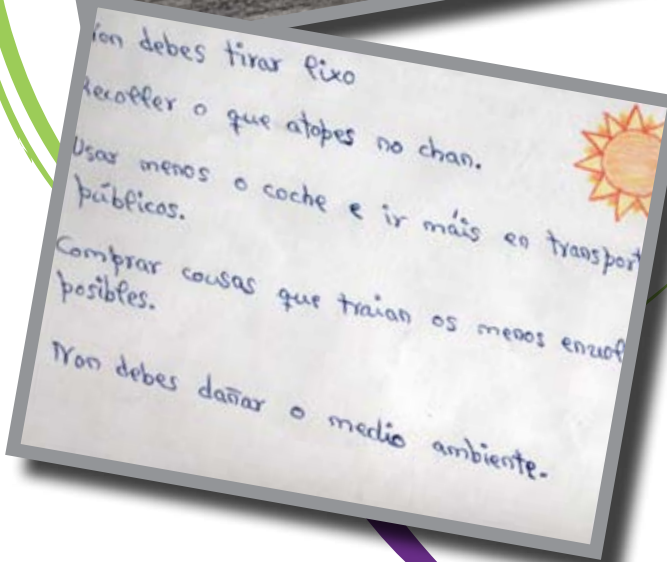 on debes tirar lixo
Recoller o que atopes no chan.
Usar menos o coche e ir máis en transport
públicos.
Comprar cousas que traian os menos envol
posibles.
Non debes dañar o medio ambiente.